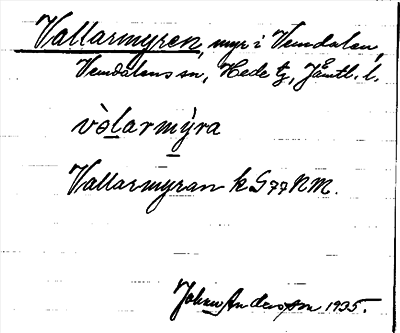 Vallarmyren, myr i Vemdalen,
Vemdalens sn, Hede tg, Jämtl. l.
vòlarmýra
Vallarmyran k G77 NM.
Johan Andersson 1935.